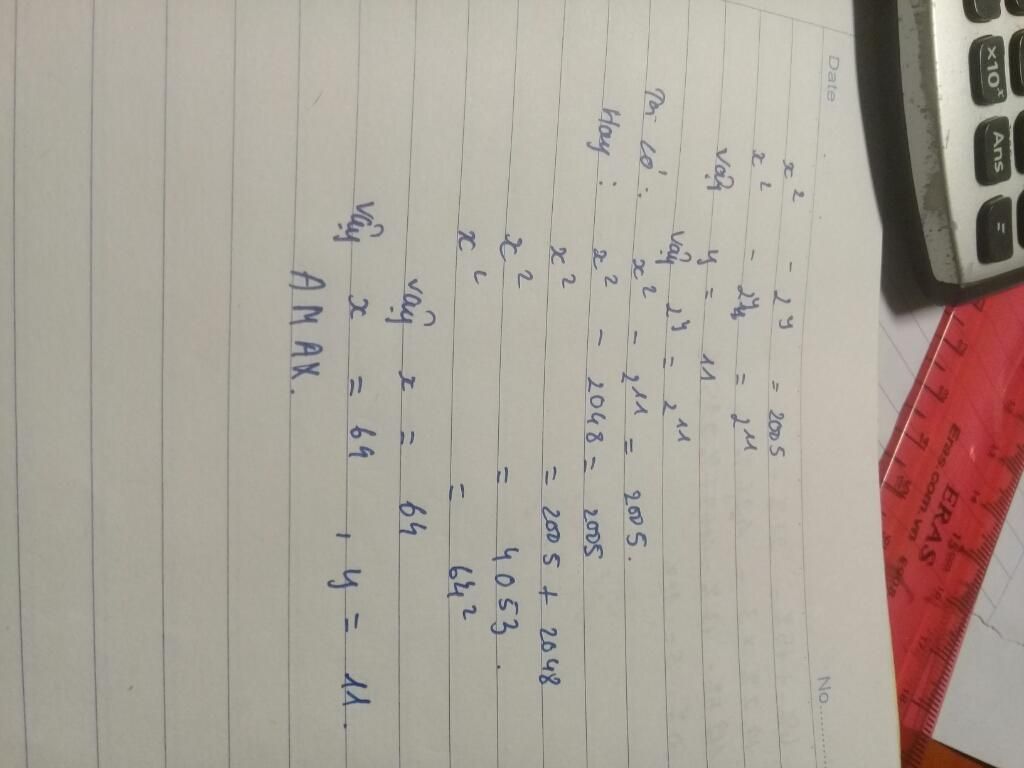 Date
No
x² - 2^y = 2005
x² - 2^y = 2^11
vậy y = 11
vậy 2^y = 2^11
Ta có: x² - 2^11 = 2005.
Hay: x² - 2048 = 2005
x² = 2005 + 2048
x² = 4053.
x² = 64²
vậy x = 64
vậy x = 64, y = 11.
AMAX.
x10^x
Ans
=
ERAS
Eras.com.vn